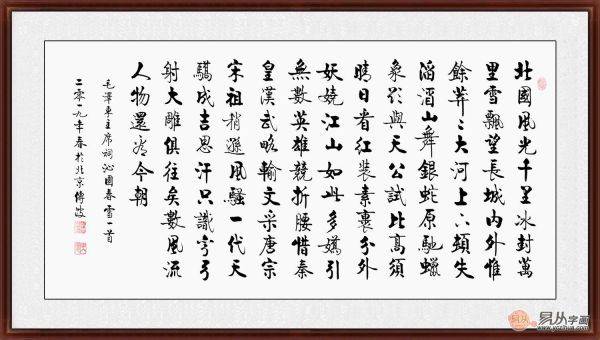 北國風光千里冰封萬
里雪飄望長城內外惟
餘莽々大河上下頓失
滔滔山舞銀蛇原馳蠟
象欲與天公試比高須
晴日看紅裝素裹分外
妖嬈江山如此多嬌引
無數英雄競折腰惜秦
皇漢武略輸文采唐宗
宋祖稍遜風騷一代天
驕成吉思汗只識彎弓
射大雕俱往矣數風流
人物還看今朝
毛澤東主席詞沁園春雪一首
二零一九年春於北京傅
易从字画
www.yczihua.com